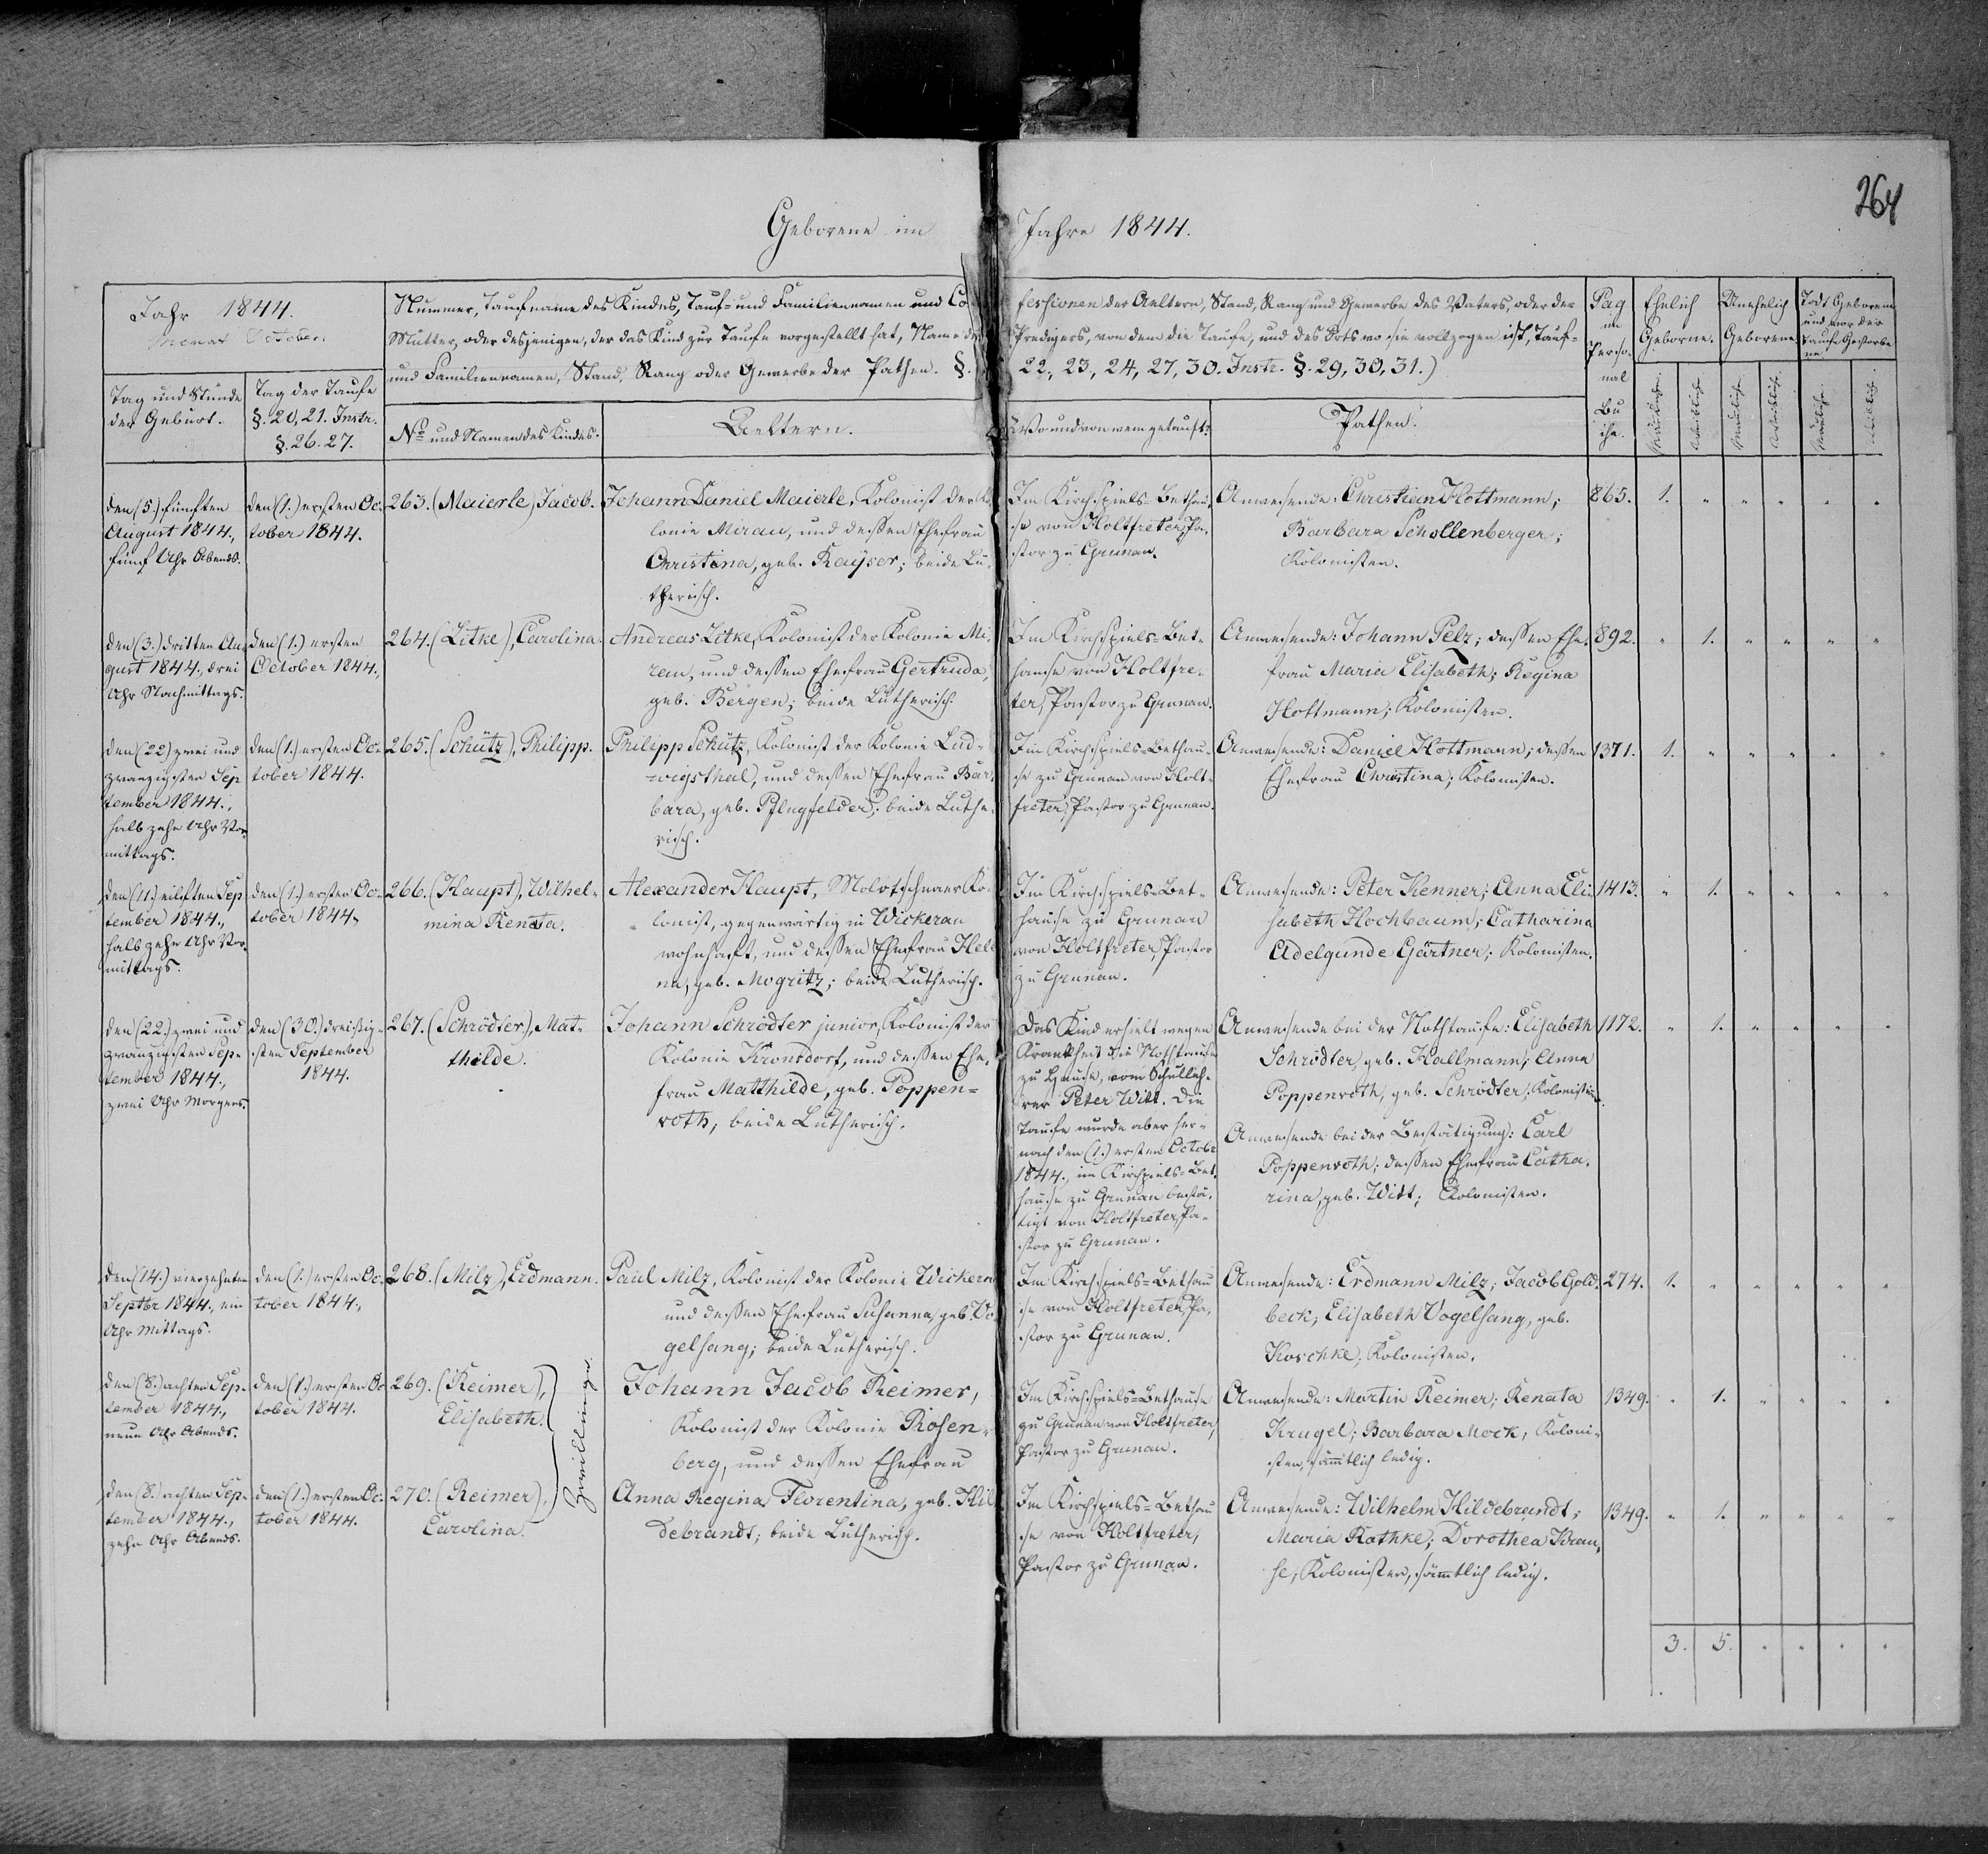 264
Geborene im Jahre 1844.
Jahr 1844.
Monat October
Nummer, Taufname des Kindes, Tauf- und Familiennamen und Confessionen der Aeltern, Stand, Rang und Gewerbe des Vaters, oder der
Mutter, oder desjenigen, der das Kind zur Taufe vorgestellt hat, Name des Predigers, von dem die Taufe, und des Orts wo sie vollzogen ist, Tauf-
und Familiennamen, Stand, Rang oder Gewerbe der Pathen. §. 22, 23, 24, 27, 30. Instr. §. 29, 30, 31.)
Tag und Stunde
der Geburt.
Tag der Taufe
§. 20, 21. Instr.
§. 26. 27.
No und Namen des Kindes.
Aeltern.
Wo und von wem getauft?
Pathen.
Pag
im
Perso-
nal
Bu
che.
Ehelich
Geborne.
Unehelich
Geborene.
Todt Geborene
und vor der
Taufe Gestorbe
ne
Männliche.
Weibliche.
Männliche.
Weibliche.
Männliche.
Weibliche.
den (5.) fünften
August 1844.,
fünf Uhr Abends.
den (1.) ersten Oc-
tober 1844.
263. (Maierle) Jacob.
Johann Daniel Maierle, Kolonist der Ko-
lonie Mirau, und dessen Ehefrau
Christina, geb. Kayser; beide Lu-
therisch.
Im Kirchspiels-Bethau-
se von Holtfreter, Pa-
stor zu Grunau.
Anwesende: Christian Hottmann;
Barbara Schollenberger;
Kolonisten.
865. 1. " " " " "
den (3.) dritten Au-
gust 1844., drei
Uhr Nachmittags.
den (1.) ersten
October 1844.,
264. (Litke), Carolina.
Andreas Litke, Kolonist der Kolonie Mi-
rau, und dessen Ehefrau Gertruda,
geb. Bergen; beide Lutherisch.
Im Kirchspiels-Bet-
hause von Holtfre-
ter, Pastor zu Grunau.
Anwesende: Johann Pelz; dessen Ehe-
frau Maria Elisabeth; Regina
Hottmann; Kolonisten.
892. " 1. " " " "
den (22) zwei und
zwanzigsten Sep
tember 1844.,
halb zehn Uhr Vor-
mittags.
den (1.) ersten Oc-
tober 1844.
265. (Schütz), Philipp.
Philipp Schütz, Kolonist der Kolonie Lud-
wigsthal, und dessen Ehefrau Bar-
bara, geb. Pflugfelder; beide Luthe-
risch.
Im Kirchspiels-Bethau-
se zu Grunau von Holt-
freter, Pastor zu Grunau.
Anwesende: Daniel Hottmann; dessen
Ehefrau Christina; Kolonisten.
1371. 1. " " " " "
den (11.) eilften Sep
tember 1844.,
halb zehn Uhr Vor-
mittags.
den (1.) ersten Oc-
tober 1844.,
266. (Haupt), Wilhel-
mina Renata.
Alexander Haupt, Molotschnaer Ko-
lonist, gegenwärtig in Wickerau
wohnhaft, und dessen Ehefrau Hele
na, geb. Mogritz; beide Lutherisch.
Im Kirchspiels-Bet-
hause zu Grunau
von Holtfreter, Pastor
zu Grunau.
Anwesende: Peter Kenner; Anna Eli-
sabeth Hochbaum; Catharina
Adelgunde Gärtner; Kolonisten.
1413. " 1. " " " "
den (22.) zwei und
zwanzigsten Sep-
tember 1844.,
zwei Uhr Morgens.
den (30.) dreissig-
sten September
1844.
267. (Schrödter), Mat-
thilde.
Johann Schrödter junior, Kolonist der
Kolonie Kronsdorf, und dessen Ehe-
frau Matthilde, geb. Poppen-
roth; beide Lutherisch.
Das Kind erhielt wegen
Krankheit die Nothtaufe
zu Hause, vom Schulleh-
rer Peter Witt. Die
Taufe wurde aber her-
nach den (1.) ersten Octobr
1844., im Kirchspiels-Bet-
hause zu Grunau bestä-
tigt von Holtfreter, Pa-
stor zu Grunau.
Anwesende bei der Nothtaufe: Elisabeth
Schrödter, geb. Hallmann; Anna
Poppenroth, geb. Schrödter; Kolonisten.
Anwesende bei der Bestätigung: Carl
Poppenroth; dessen Ehefrau Catha-
rina, geb. Witt; Kolonisten.
1172. " 1. " " " "
den (14.) vierzehnten
Septbr 1844., ein
Uhr Mittags.
den (1.) ersten Oc-
tober 1844.,
268. (Milz), Erdmann.
Paul Milz, Kolonist der Kolonie Wickerau
und dessen Ehefrau Susanna, geb. Vo-
gelsang; beide Lutherisch.
Im Kirchspiels-Bethau
se von Holtfreter, Pa-
stor zu Grunau.
Anwesende: Erdmann Milz; Jacob Gold-
beck; Elisabeth Vogelsang, geb.
Koschke; Kolonisten.
274. 1. " " " " "
den (8.) achten Sep-
tember 1844.,
neun Uhr Abends.
den (1.) ersten Oc
tober 1844.
269. (Reimer),
Elisabeth.
Zwillinge.
Johann Jacob Reimer,
Kolonist der Kolonie Rosen-
berg, und dessen Ehefrau
Im Kirchspiels-Bethause
zu Grunau von Holtfreter,
Pastor zu Grunau.
Anwesende: Martin Reimer; Renata
Krugel; Barbara Mock; Koloni-
sten, sämtlich ledig.
1349. " 1. " " " "
den (8.) achten Sep-
tember 1844.,
zehn Uhr Abends.
den (1.) ersten Oc-
tober 1844.
270. (Reimer),
Carolina.
Anna Regina Florentina, geb. Hil
debrandt; beide Lutherisch.
Im Kirchspiels-Bethau
se von Holtfreter,
Pastor zu Grunau.
Anwesende: Wilhelm Hildebrandt;
Maria Rathke; Dorothea Krau-
se, Kolonisten, sämmtlich ledig.
1349. " 1. " " " "
3. 5. " " " "